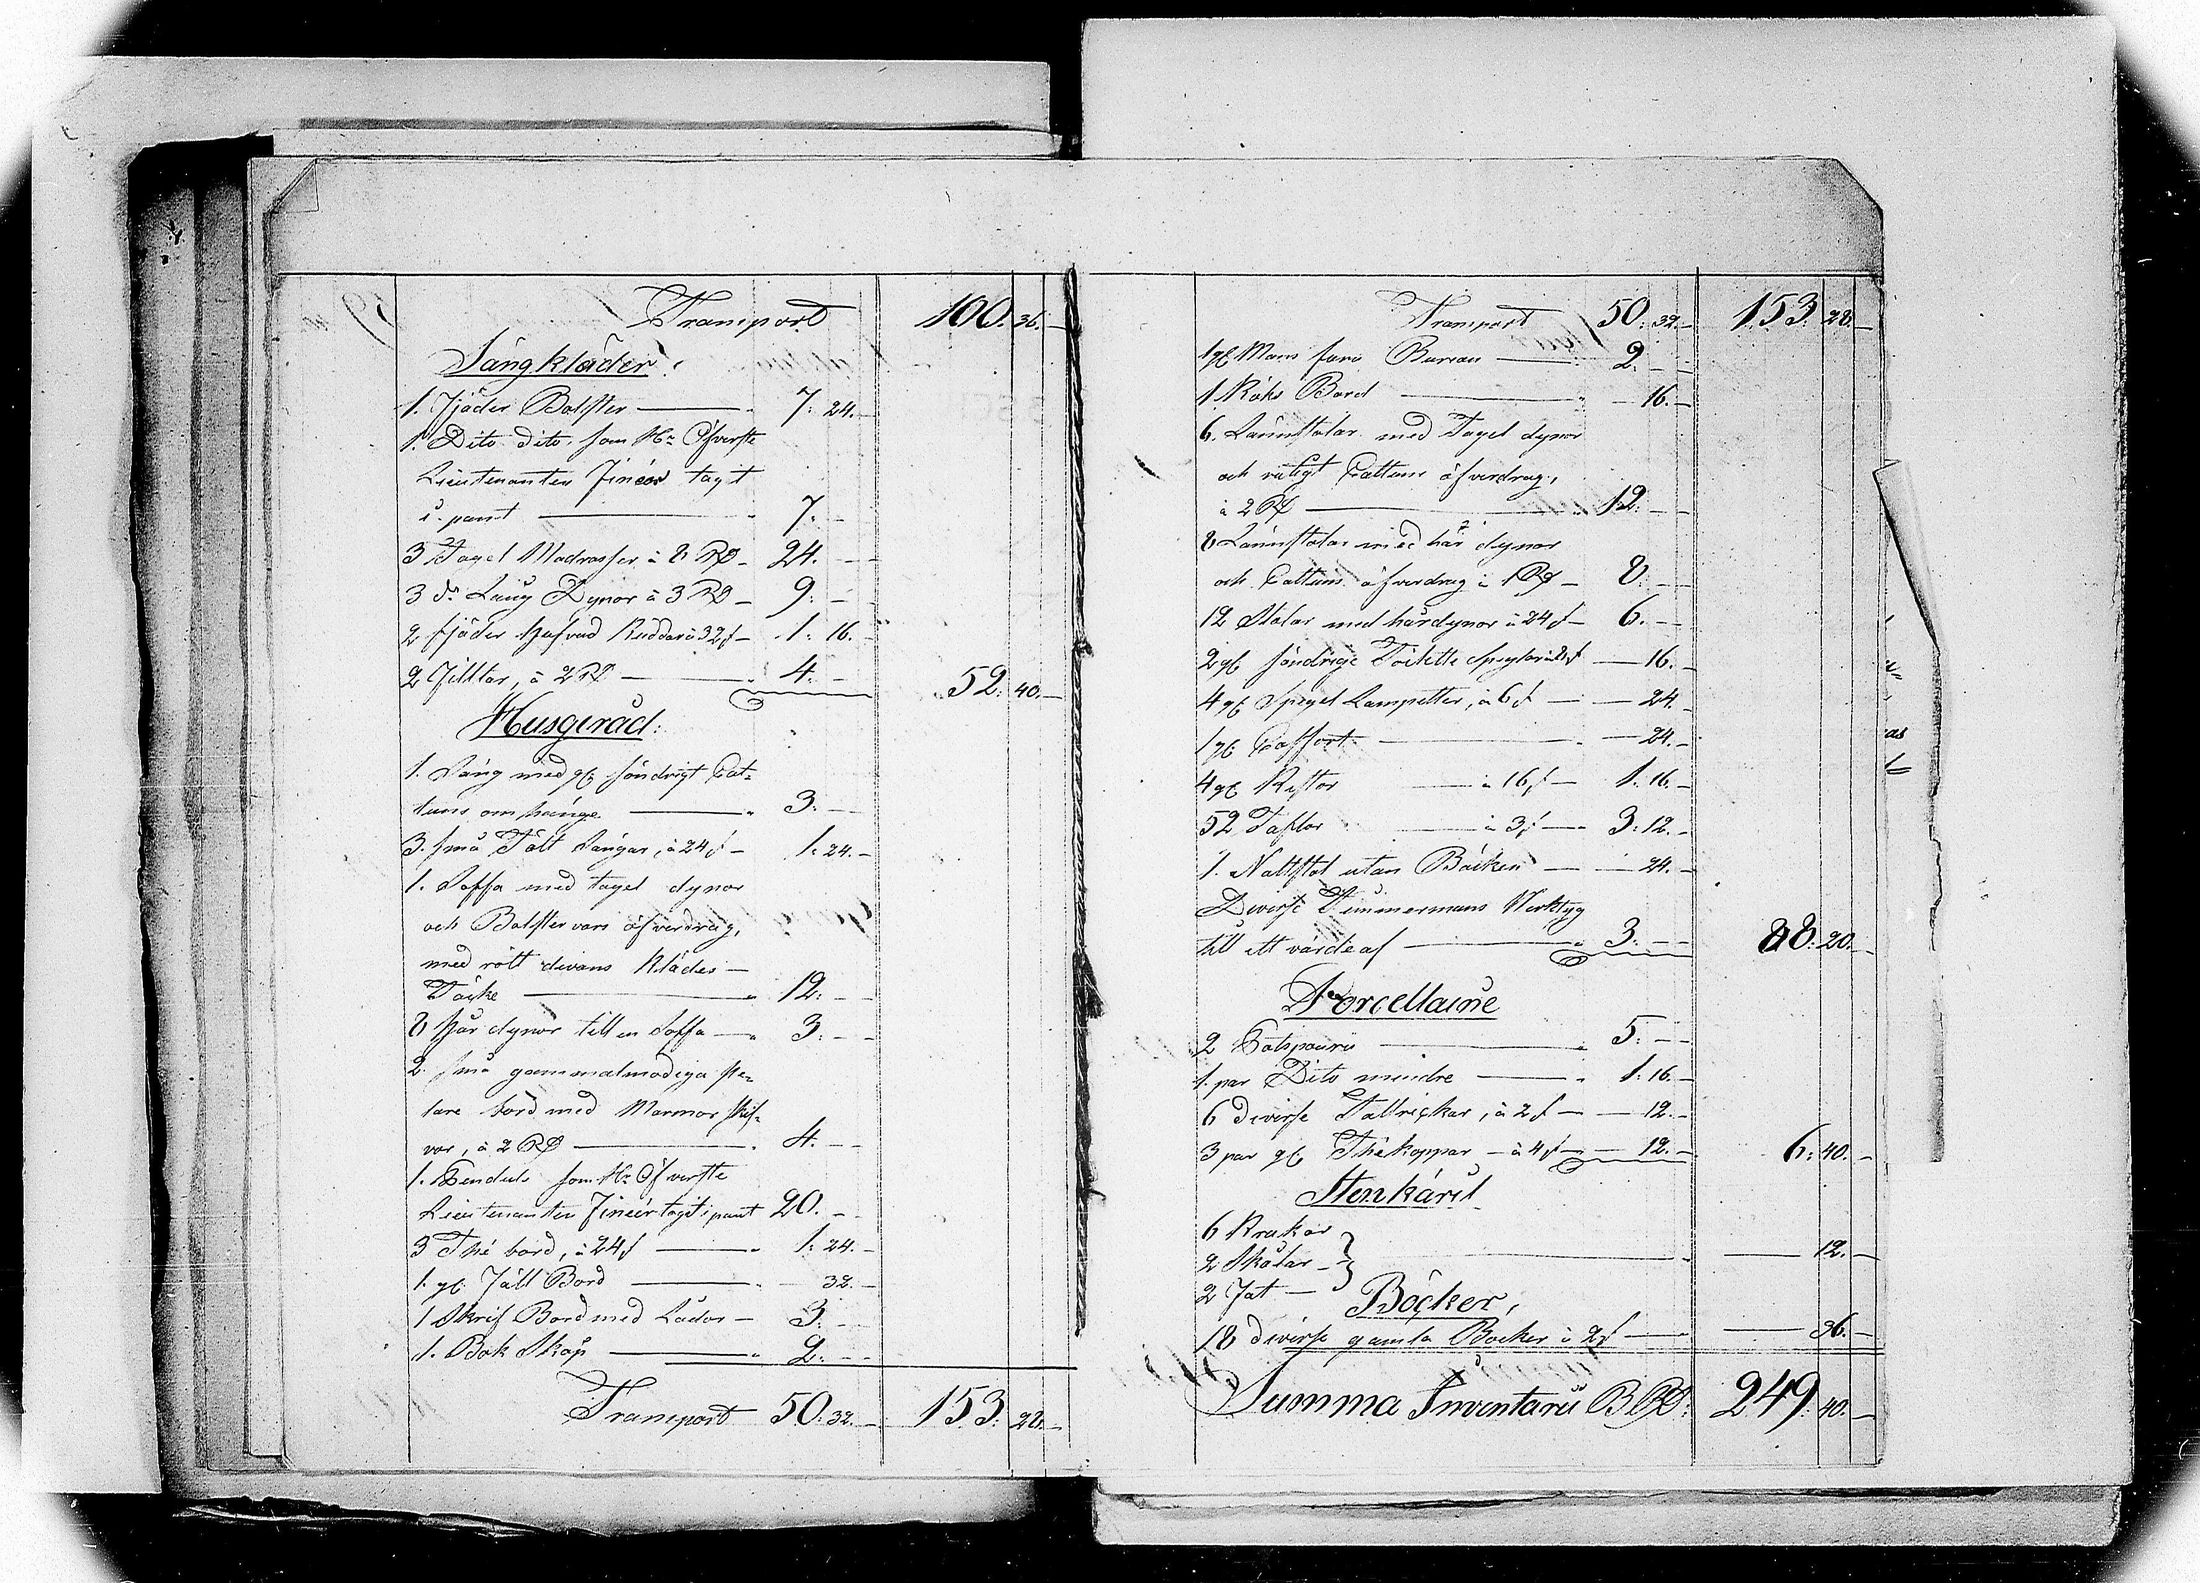 Transport 100. 36. —
Sängkläder.
1. Fjäder Bolster — 7: 24. —
1. Dito dito, som Hr Öfverste
Lieutenanten Jinéor tagit
i pant — 7: —
3 Tagel Madrasser à 8 RD — 24. —
3 do Lång Dynor à 3 RD — 9: —
2 fjäder Hufvud Kuddar à 32 f — 1: 16. —
2 Filltar, à 2 RD — 4. — 52: 40. —
Husgeråd:
1. Säng med gl. söndrigt Cat-
tuns omhänge — 3. —
3. små Tält Sängar, à 24 f — 1: 24. —
1. Soffa med tagel dynor
och Bolstervars öfverdrag,
med rött divans Klädes —
Täcke — 12: —
8 Hår dynor till en Soffa — 3: —
2. små gammalmodiga pe-
lare bord med Marmor skif-
vor, à 2 RD — 4. —
1. Pendul som Hr Öfverste
Lieutenanten Jineór tagit i pant 20. —
3 Thé bord, à 24 f — 1: 24. —
1. gl. Fält Bord — 32. —
1 Skrif Bord med Lådor — 3: —
1. Bok Skåp — 2: —
Transport 50: 32. — 153: 28. —
Transport 50: 32. — 153: 28. —
1 gl. Mans Bureau — 2. —
1 Köks Bord — 16. —
6. Lännstolar med Tagel dynor
och Cattuns öfverdrag,
à 2 RD — 12: —
8 Lännstolar med hår dynor
och Cattuns öfverdrag à 1 RD — 8: —
12 Stolar med hårdynor à 24 f — 6. —
2 gl. söndrige Toilette Speglar à 8 f — 16. —
4 gl. Spegel Lampetter, à 6 f — 24. —
1 gl. Coffort — 24. —
4 gl. Kistor — à 16 f — 1: 16. —
52 Taflor — à 3 f — 3: 12. —
1. Nattstol utan Bäcken — 24. —
Diverse Timmermans Verktyg
till ett värde af — 3: — 38: 20. —
Porcellaine
2 Potspourii — 5: —
1. par Dito mindre — 1: 16. —
6 diverse Tallrickar, à 2 f — 12. —
3 par gl. Thékoppar — à 4 f — 12. — 6: 40. —
Stenkäril
6 Krukor
2 Skålar — 12. —
2 Fat —
Böcker,
18 diverse gamla Böcker à 2 f — 36. —
Summa Inventarii B RD: 249: 40. —